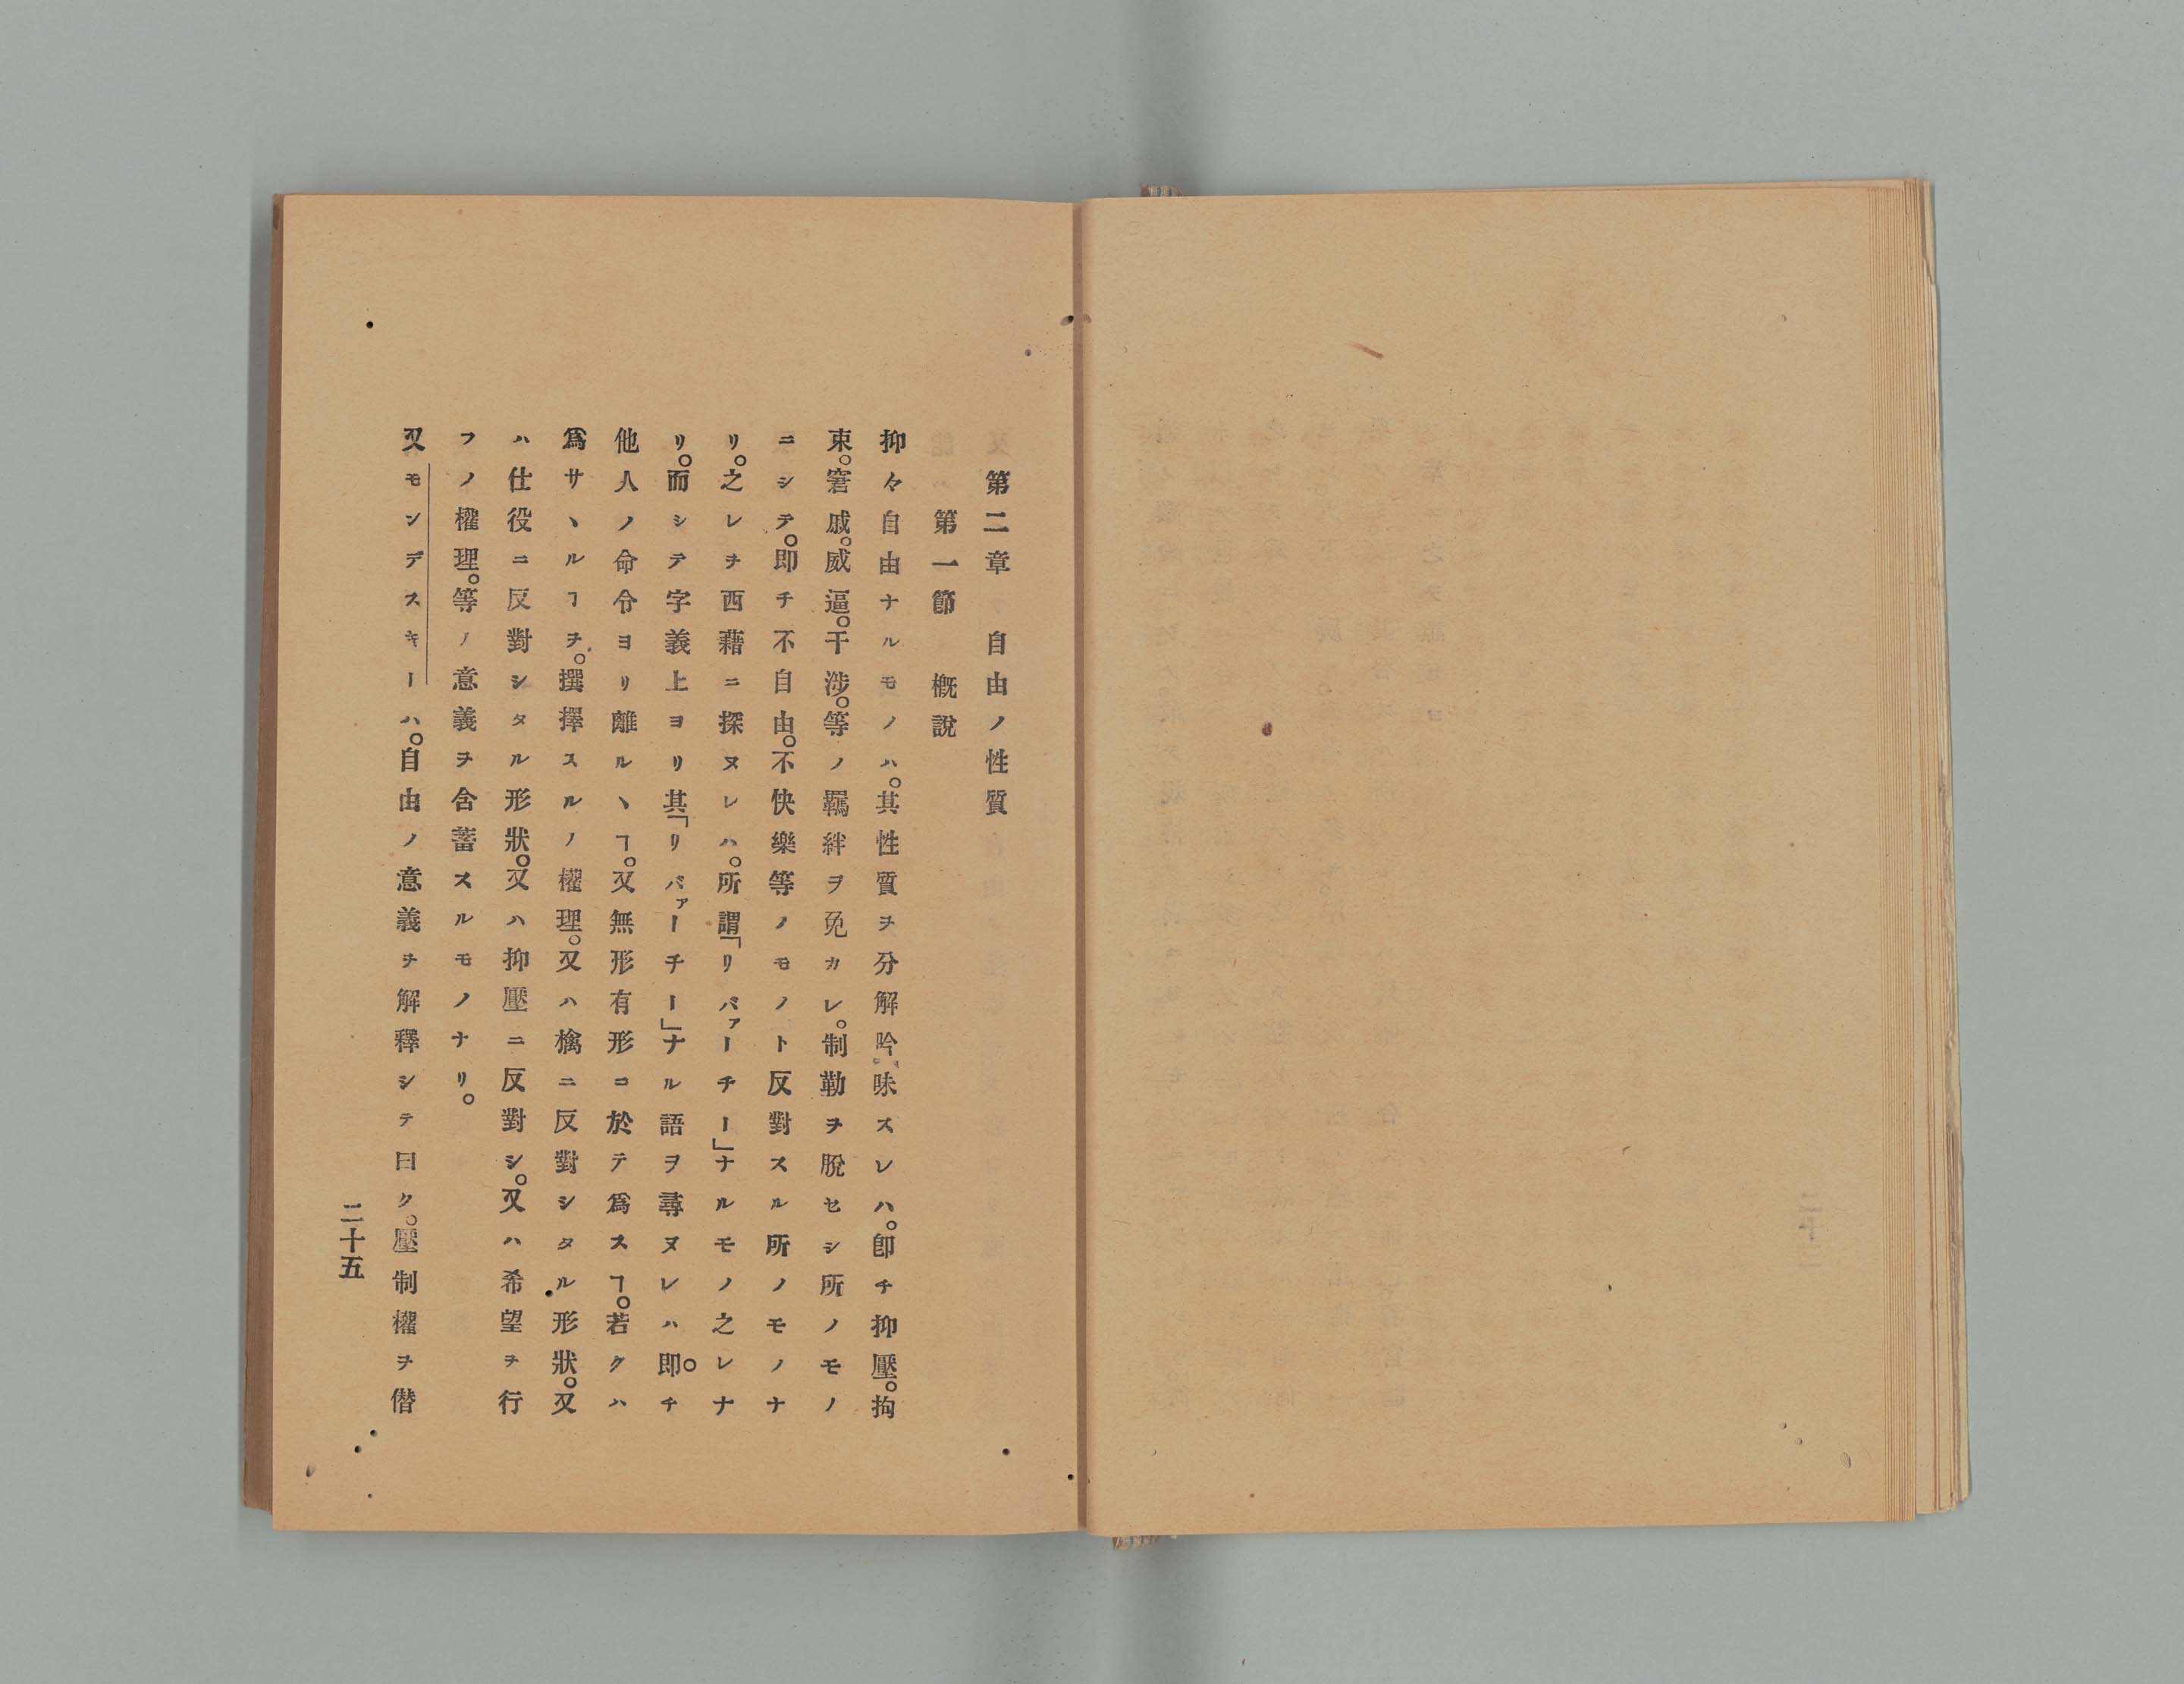 第二章　自由ノ性質
第一節　概說
抑々自由ナルモノハ。其性質ヲ分解吟味スレハ。卽チ抑壓。拘
束。窘戚。威逼。干涉。等ノ羈絆ヲ免カレ。制勒ヲ脫セシ所ノモノ
ニシテ。卽チ不自由。不快樂等ノモノト反對スル所ノモノナ
リ。之レヲ西藉ニ探ヌレハ。所謂「リバァーチー」ナルモノ之レナ
リ。而シテ字義上ヨリ其「リバァーチー」ナル語ヲ尋ヌレハ卽。チ
他人ノ命令ヨリ離ルヽヿ。又無形有形コ於テ爲スヿ。若クハ
爲サヽルヿヲ。撰擇スルノ權理。又ハ檎ニ反對シタル形狀。又
ハ仕役ニ反對シタル形狀。又ハ抑壓ニ反對シ。又ハ希望ヲ行
フノ權理。等ノ意義ヲ含蓄スルモノナリ。
又モンデスキーハ。自由ノ意義ヲ解釋シテ曰ク。壓制權ヲ僣
二十五